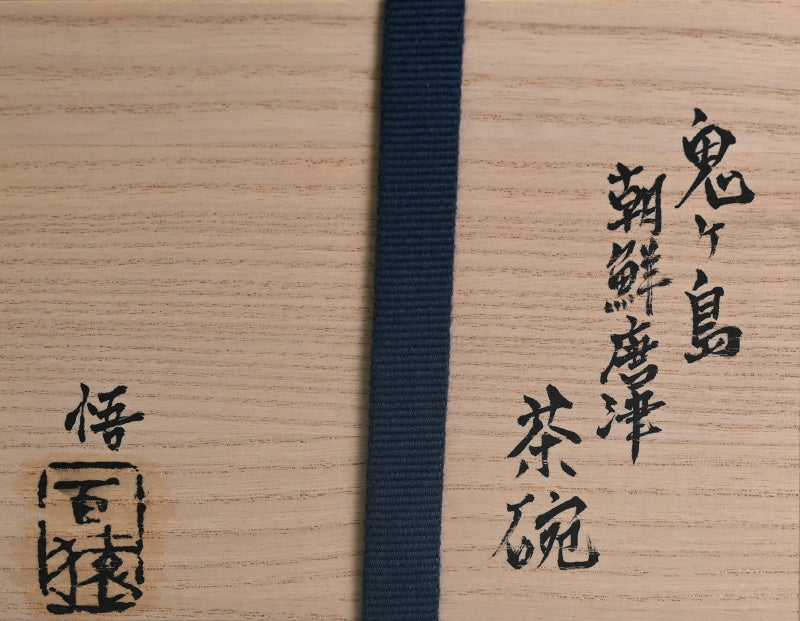 鬼ヶ島
朝鮮唐津
茶碗
悟
百猿